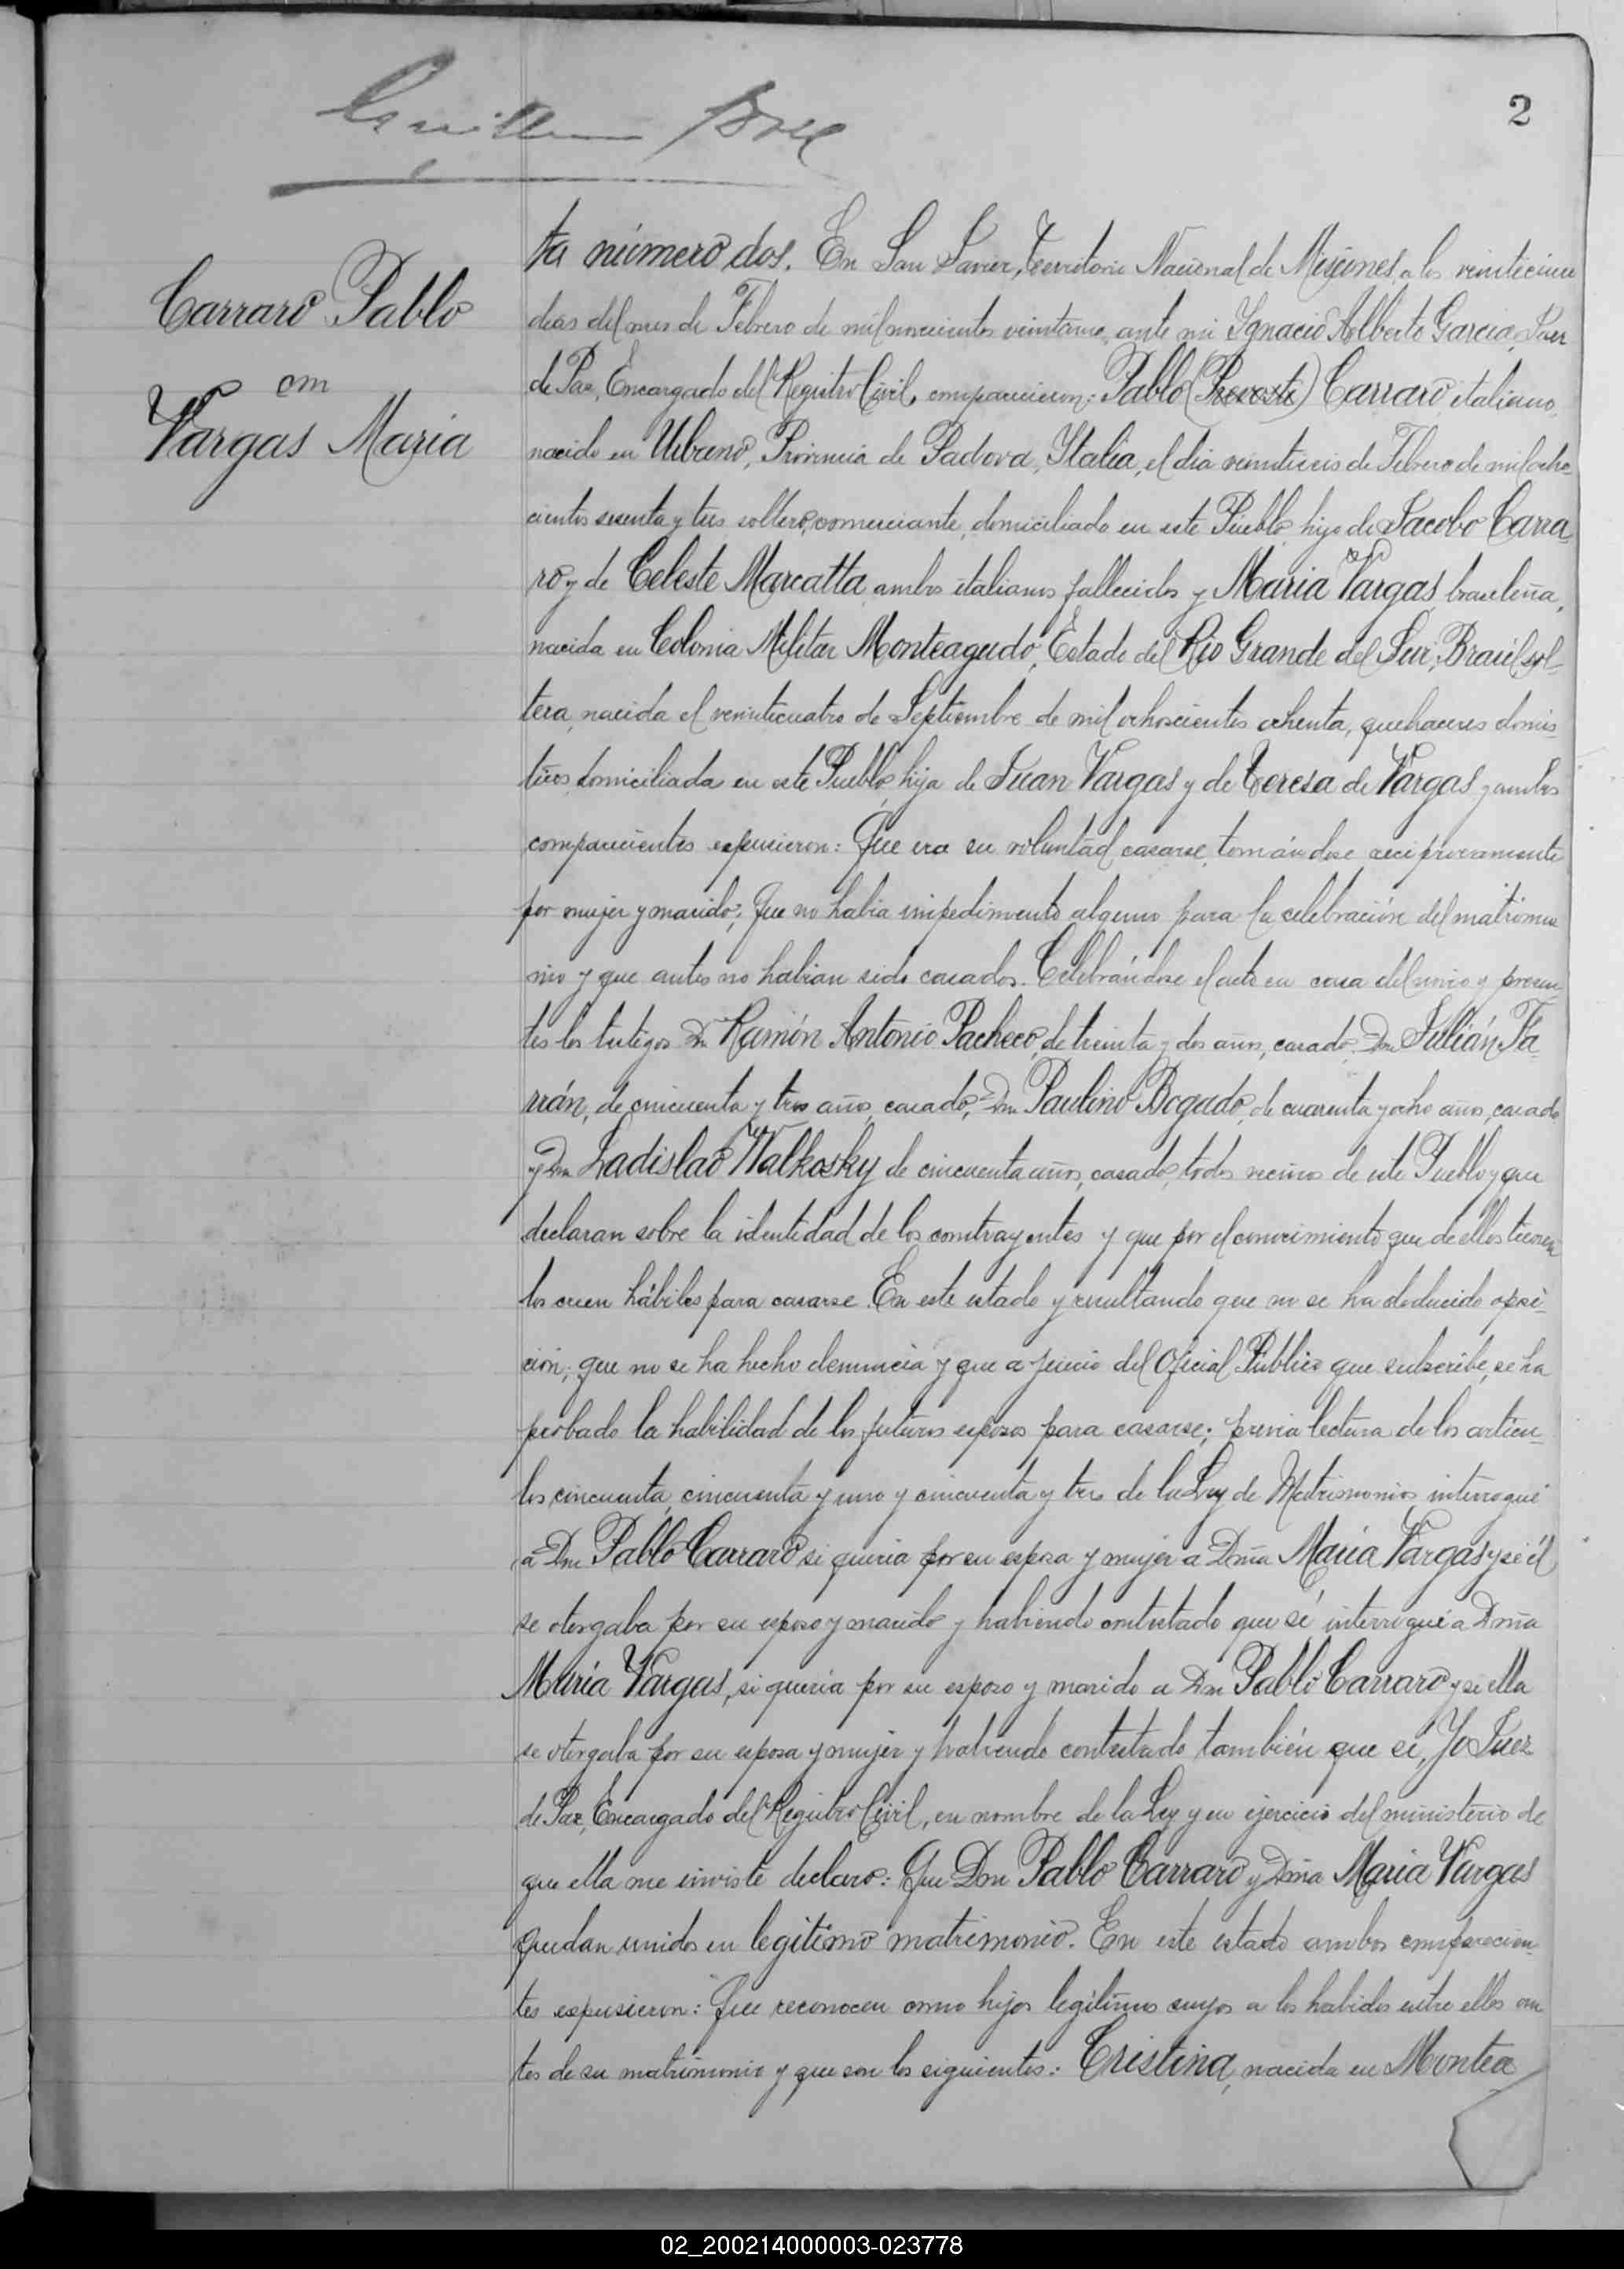 2
Carraro Pablo
con
Vargas Maria
ta número dos. En San Javier, Territorio Nacional de Misiones, a los veinticinco
dias del mes de Febrero de mil novecientos veintiuno, ante mi Ignacio Alberto Garcia, Juez
de Paz, Encargado del Registro Civil, comparecieron: Pablo (Prevosti) Carraro, italiano,
nacido en Urbano, Provincia de Padova, Italia, el dia veintiseis de Febrero de mil ocho-
cientos sesenta y tres, soltero, comerciante, domiciliado en este Pueblo, hijo de Jacobo Carra
ro y de Celeste Marcatta, ambos italianos fallecidos y Maria Vargas, brasileña,
nacida en Colonia Militar Monteagudo, Estado del Rio Grande del Sur, Brasil, sol-
tera, nacida el veinticuatro de Septiembre de mil ochoscientos ochenta, quehaceres domes
ticos, domiciliada en este Pueblo, hija de Juan Vargas y de Teresa de Vargas y ambos
comparecientes espusieron: Que era su voluntad casarse, tomándose reciprocamente
por mujer y marido; Que no habia impedimento alguno para la celebración del matrimo
nio y que antes no habian sido casados. Celebrándose el acto en casa del novio y presen
tes los testigos Dn Ramón Antonio Pacheco, de treinta y dos años, casado, Don Julián Fa-
rrán, de cincuenta y tres años, casado, Don Paulino Bogado, de cuarenta y ocho años, casado
y Don Ladislao Walkosky de cincuenta años, casado, todos vecinos de este Pueblo y que
declaran sobre la identidad de los contrayentes y que por el conocimiento que de ellos tienen
los creen hábiles para casarse. En este estado y resultando que no se ha deducido oposi-
ción; que no se ha hecho denuncia y que a juicio del Oficial Público que subscribe, se ha
probado la habilidad de los futuros esposos para casarse; previa lectura de los articu-
los cincuenta, cincuenta y uno y cincuenta y tres de la Ley de Matrimonios, interrogué
a Don Pablo Carraro si queria por su esposa y mujer a Doña Maria Vargas y si él
se otorgaba por su esposo y marido y habiendo contestado que sí, interrogué a Doña
Maria Vargas, si queria por su esposo y marido a Don Pablo Carraro y si ella
se otorgaba por su esposa y mujer y habiendo contestado también que sí, Yo Juez
de Paz, Encargado del Registro Civil, en nombre de la Ley y en ejercicio del ministerio de
que ella me inviste declaro: Que Don Pablo Carraro y Doña Maria Vargas
quedan unidos en legitimo matrimonio. En este estado ambos comparecien-
tes espusieron: Que reconocen como hijos legitimos suyos a los habidos entre ellos an
tes de su matrimonio y que son los siguientes: Cristina, nacida en Montea
02_200214000003-023778